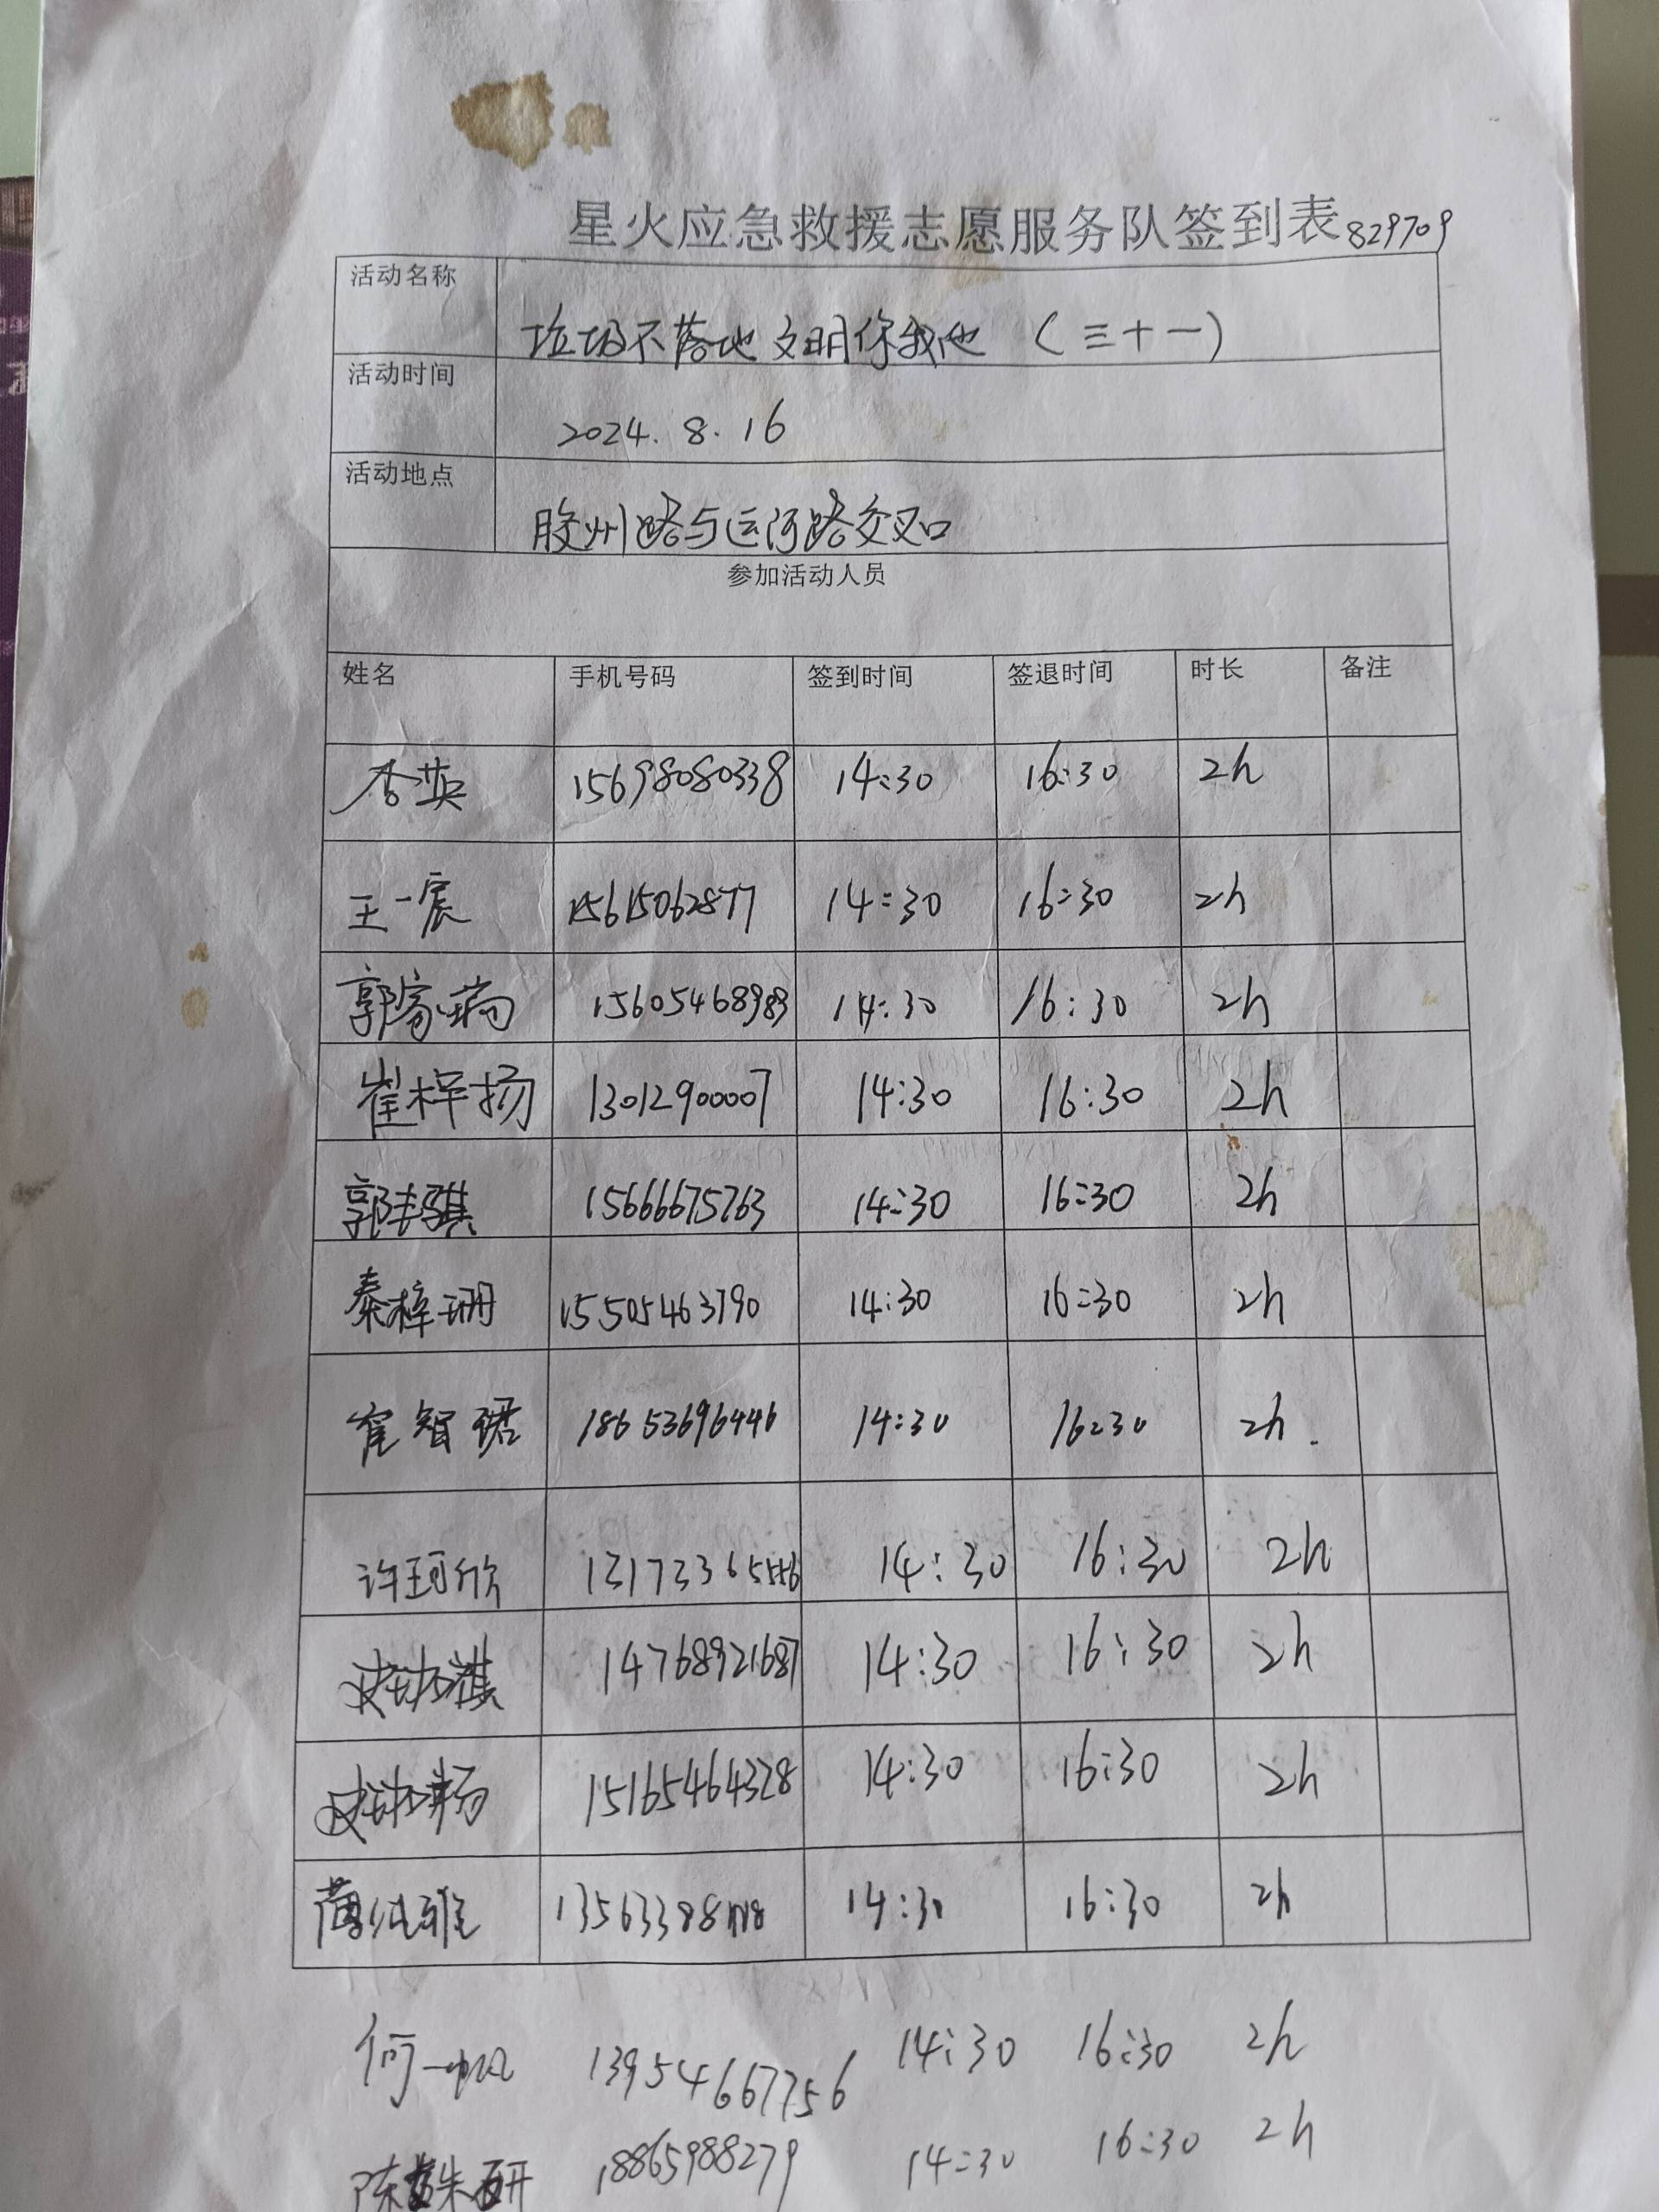 星火应急救援志愿服务队签到表 829709
活动名称 垃圾不落地 文明你我他 (三十一)
活动时间 2024.8.16
活动地点 胶州路与运河路交叉口
参加活动人员
姓名 手机号码 签到时间 签退时间 时长 备注
杏英 15698080338 14:30 16:30 2h
王一宸 15615062877 14:30 16:30 2h
郭家 15605468983 14:30 16:30 2h
崔梓扬 13012900007 14:30 16:30 2h
郭 骐 15666675763 14:30 16:30 2h
秦梓珊 15505463790 14:30 16:30 2h
崔智珺 18653696446 14:30 16:30 2h.
许珂欣 14:30 16:30 2h
14768921687 14:30 16:30 2h
15165464328 14:30 16:30 2h
薄 雅 14:30 16:30 2h
何一帆 13954667756 14:30 16:30 2h
陈 姝研 18865988279 14:30 16:30 2h